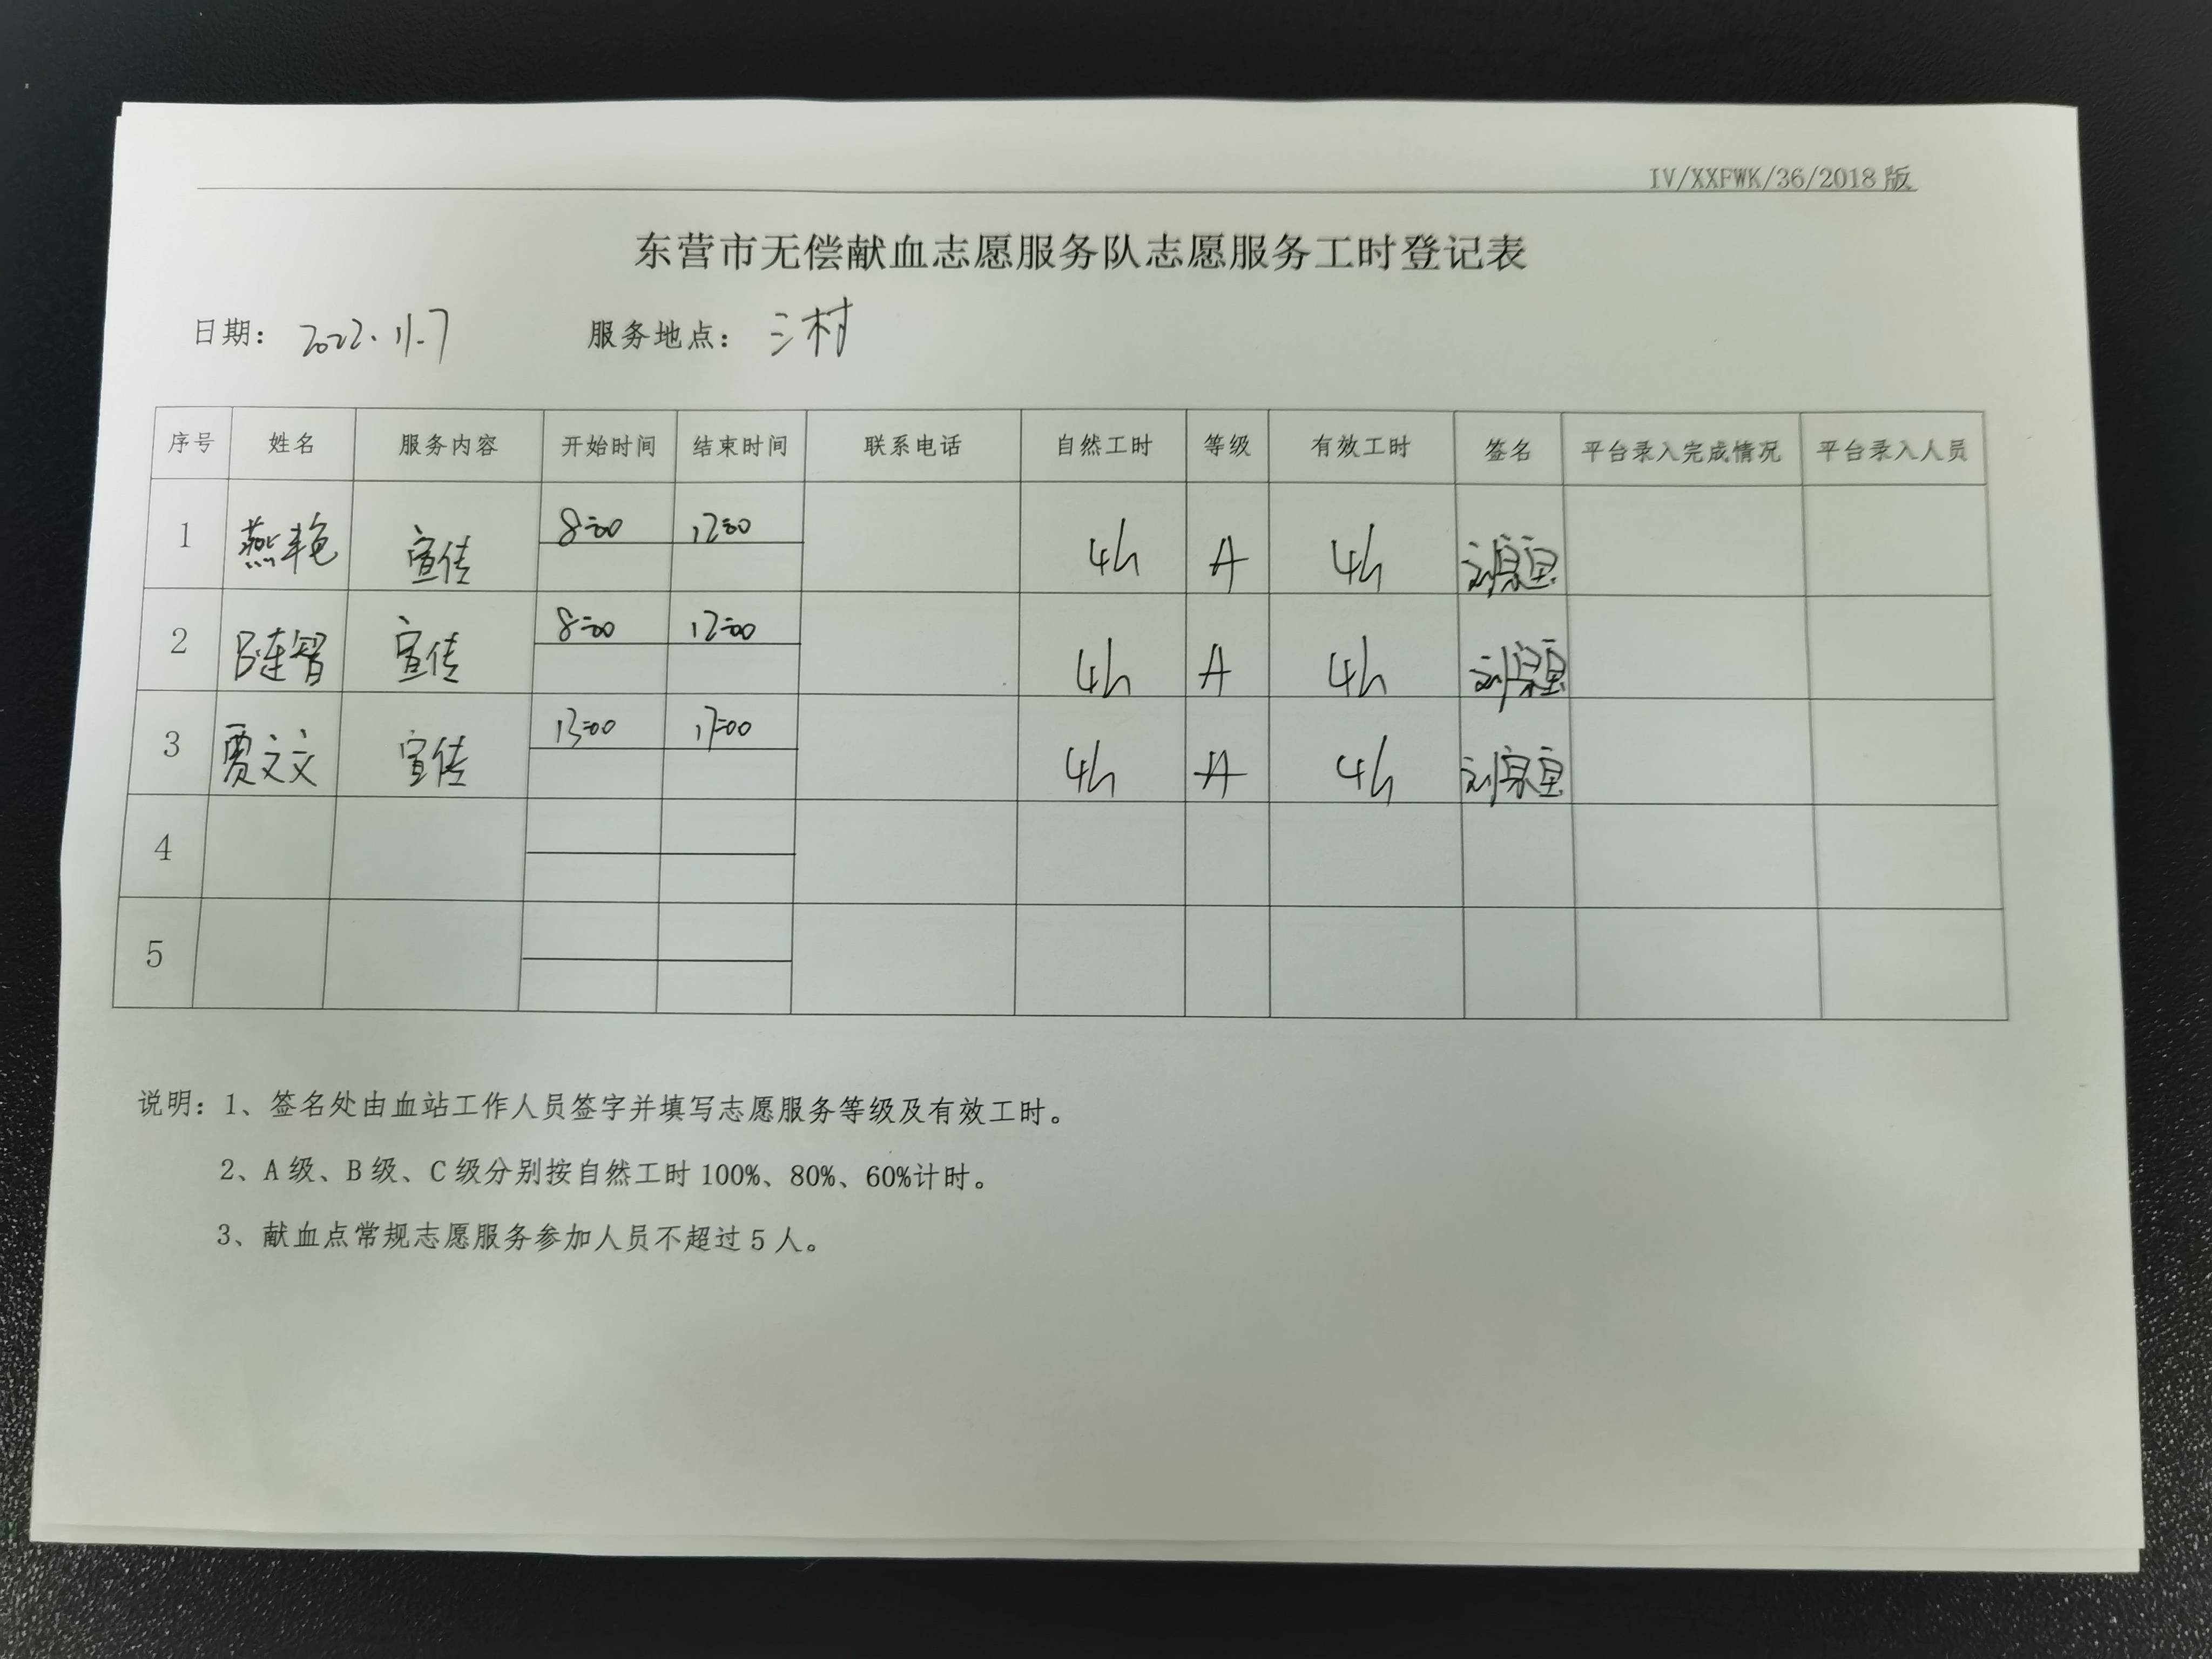 IV/XXFWK/36/2018版
东营市无偿献血志愿服务队志愿服务工时登记表
日期： 2022.11.7 服务地点： 三村
序号 姓名 服务内容 开始时间 结束时间 联系电话 自然工时 等级 有效工时 签名 平台录入完成情况 平台录入人员
1 燕艳 宣传 8:00 12:00 4h A 4h
2 宣传 8:00 12:00 4h A 4h
3 贾文文 宣传 13:00 17:00 4h A 4h
4
5
说明：1、签名处由血站工作人员签字并填写志愿服务等级及有效工时。
2、A级、B级、C级分别按自然工时100%、80%、60%计时。
3、献血点常规志愿服务参加人员不超过5人。